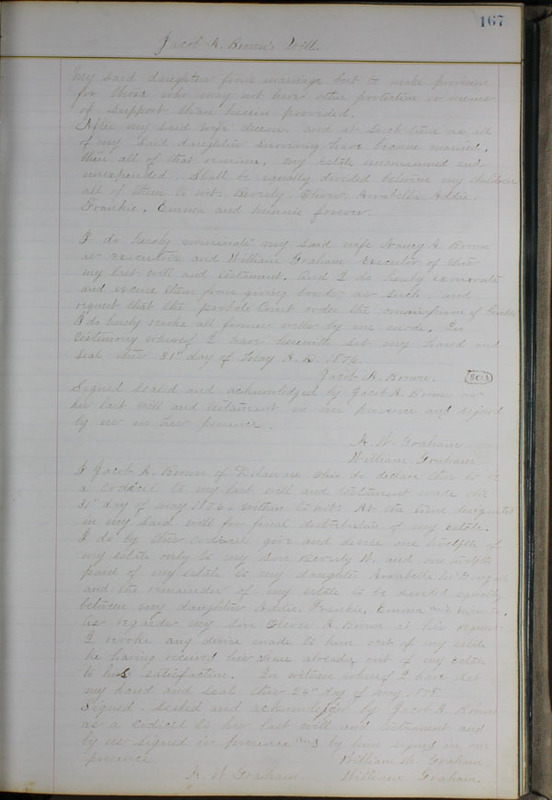 167
Jacob A. Brown's Will
my said daughters from marriage but to make provision
for those who may not have other protection or means
of support than herein provided.
After my said wife decease and at such time as all
of my said daughters surviving have become married,
then all of that remains, my estate unconsumed and
unexpended. Shall be equally divided between my children
all of them to wit: Beverly, Oliver, Annabella, Addie,
Frankie, Emma and Minnie forever.
I do hereby nominate my said wife Nancy A. Brown
as executrix and William Graham Executor of this
my last will and testament. And I do hereby exonerate
and excuse them from giving bonds, as such, and
request that the probate Court order the
I do hereby revoke all former wills by me made. In
testimony whereof I have herewith set my hand and
seal this 31st day of May A. D. 1876.
Jacob A. Brown. Seal
Signed sealed and acknowledged by Jacob A. Brown as
his last will and testament in our presence and signed
by us in his presence.
A. W. Graham
William Graham
I Jacob A. Brown of Delaware Ohio do declare this to be
a codicil to my last will and testament made the
31st day of May 1876, written to wit: At the time designated
in my said will for final distribution of my estate.
I do by this codicil give and devise one twelfth of
my estate only to my son Beverly W. and one twelfth
part of my estate to my daughter Annabella
and the remainder of my estate to be divided equally
between my daughters Addie, Frankie, Emma and Minnie.
As regards my son Oliver A. Brown at his request
I revoke any devise made to him out of my estate
he having received his share already out of my estate
to his satisfaction. In witness whereof I have set
my hand and seal this 26th day of May,
Signed sealed and acknowledged by Jacob A. Brown
as a codicil to his last will and testament and
by us signed in presence and by him signed in our
presence. William W. Graham
A. W. Graham William Graham.